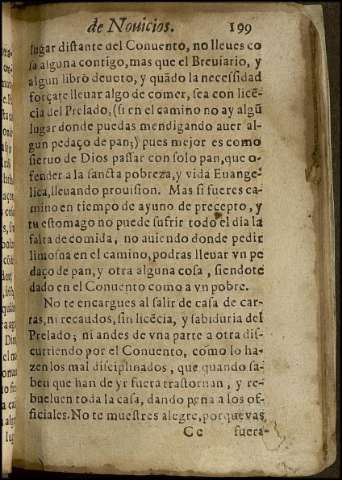 de Nouicios. 199
lugar distante del Conuento, no lleues co
sa alguna contigo, mas que el Breuiario, y
algun libro deuoto, y quãdo la necessidad
forçare lleuar algo de comer, sea con licẽ
cia del Prelado, (si en el camino no ay algũ
lugar donde puedas mendigando auer al-
gun pedaço de pan;) pues mejor es como
sieruo de Dios passar con solo pan, que o-
fender a la sancta pobreza, y vida Euange-
lica, lleuando prouision. Mas si fueres ca-
mino en tiempo de ayuno de precepto, y
tu estomago no puede sufrir todo el dia la
falta de comida, no auiendo donde pedir
limosna en el camino, podras lleuar vn pe
daço de pan, y otra alguna cosa, siendote
dado en el Conuento como a vn pobre.
No te encargues al salir de casa de car-
tas, ni recaudos, sin licẽcia, y sabiduria del
Prelado; ni andes de vna parte a otra dis-
curriendo por el Conuento, como lo ha-
zen los mal disciplinados, que quando sa-
ben que han de yr fuera trastornan, y re-
bueluen toda la casa, dando pena a los of-
ficiales. No te muestres alegre, porque vas
Cc fuera-